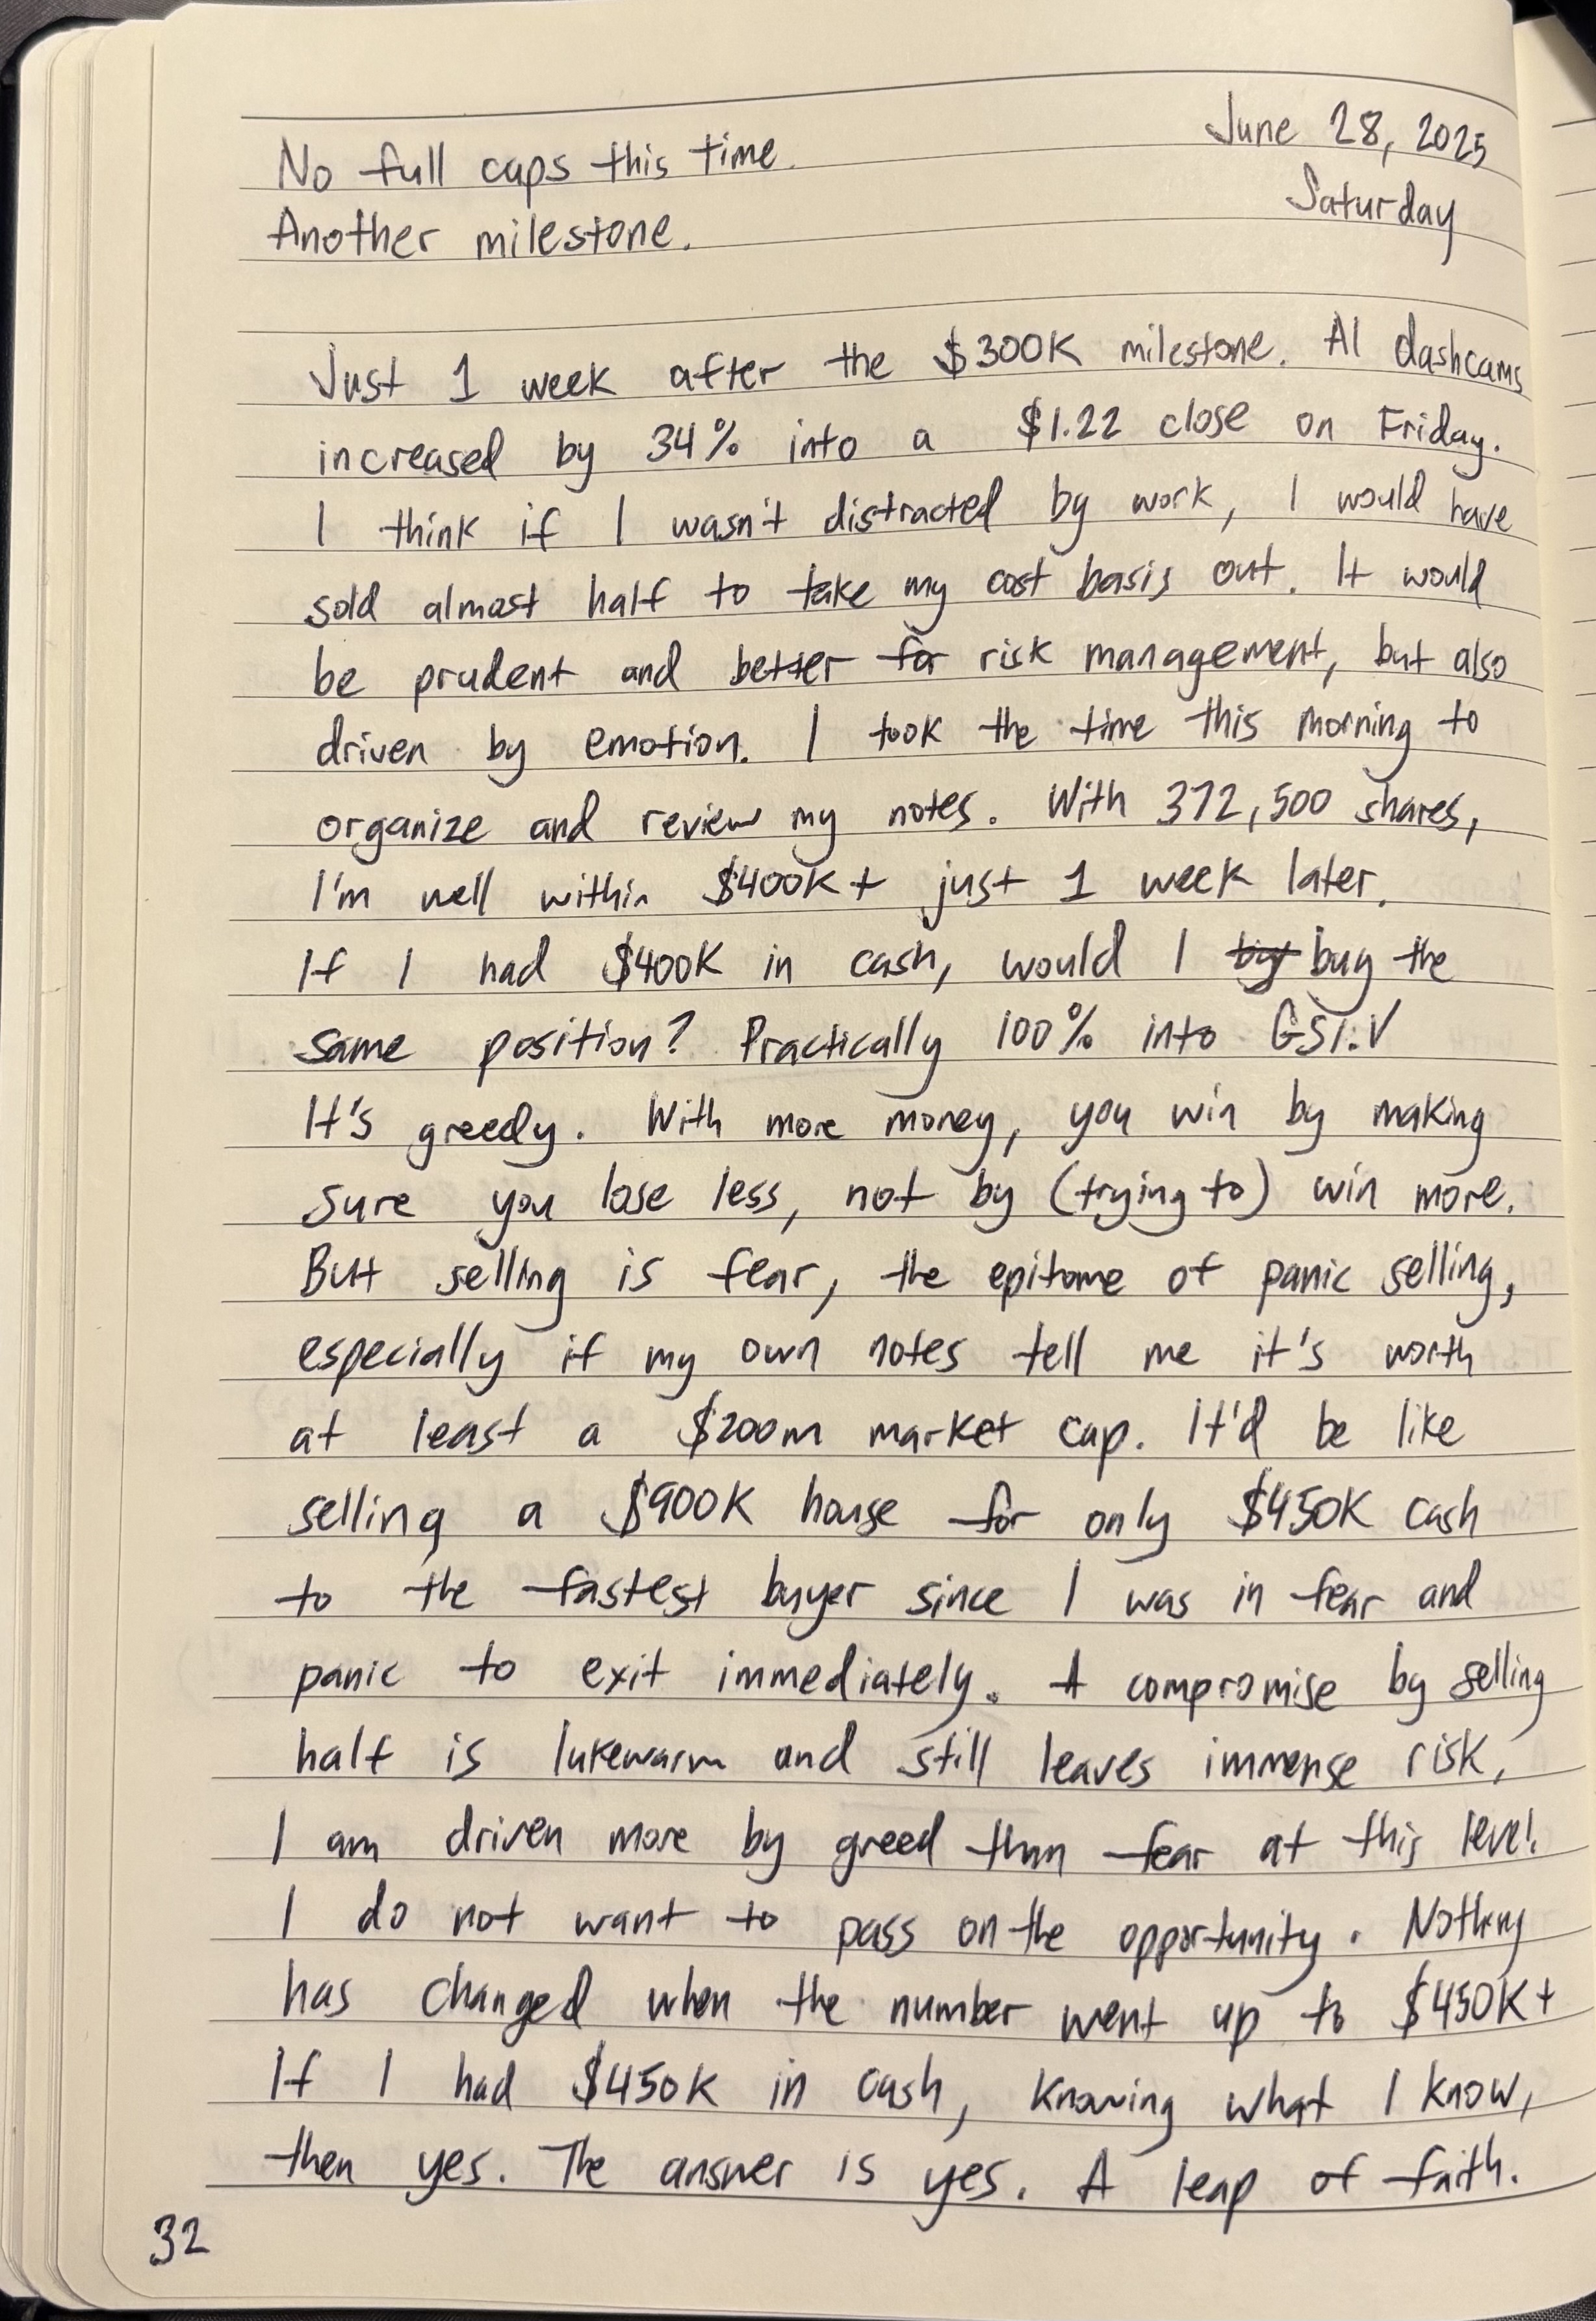 June 28, 2025
No full caps this time.
Saturday
Another milestone.
Just 1 week after the $300K milestone. AI dashcams
increased by 34% into a $1.22 close on Friday.
I think if I wasn't distracted by work, I would have
sold almost half to take my cost basis out. It would
be prudent and better for risk management, but also
driven by emotion. I took the time this morning to
organize and review my notes. With 372,500 shares,
I'm well within $400K+ just 1 week later.
If I had $400K in cash, would I buy the
same position? Practically 100% into GSI.V
It's greedy. With more money, you win by making
sure you lose less, not by (trying to) win more.
But selling is fear, the epitome of panic selling,
especially if my own notes tell me it's worth
at least a $200m market cap. It'd be like
selling a $900K house for only $450K cash
to the fastest buyer since I was in fear and
panic to exit immediately. A compromise by selling
half is lukewarm and still leaves immense risk,
I am driven more by greed than fear at this level.
I do not want to pass on the opportunity. Nothing
has changed when the number went up to $450K+
If I had $450K in cash, knowing what I know,
then yes. The answer is yes. A leap of faith.
32